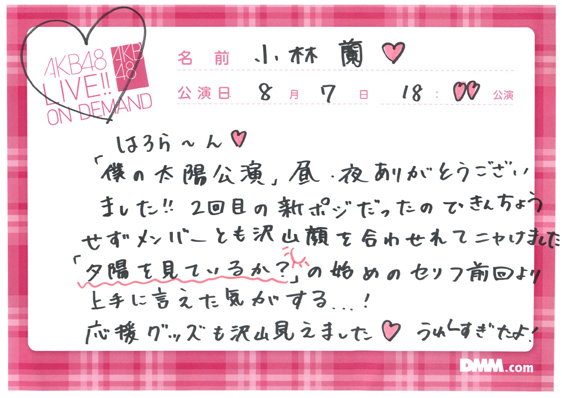 AKB48
LIVE!!
ON DEMAND
AKB
48
名前 小林 蘭
公演日 8月 7日 18:00 公演
はろら〜ん
「僕の太陽公演」昼・夜ありがとうござい
ました!! 2回目の新ポジだったのできんちょう
せずメンバーとも沢山顔を合わせれてニヤけました
「夕陽を見ているか?」の始めのセリフ前回より
上手に言えた気がする...!
応援グッズも沢山見えました うれしすぎたよ!
DMM.com